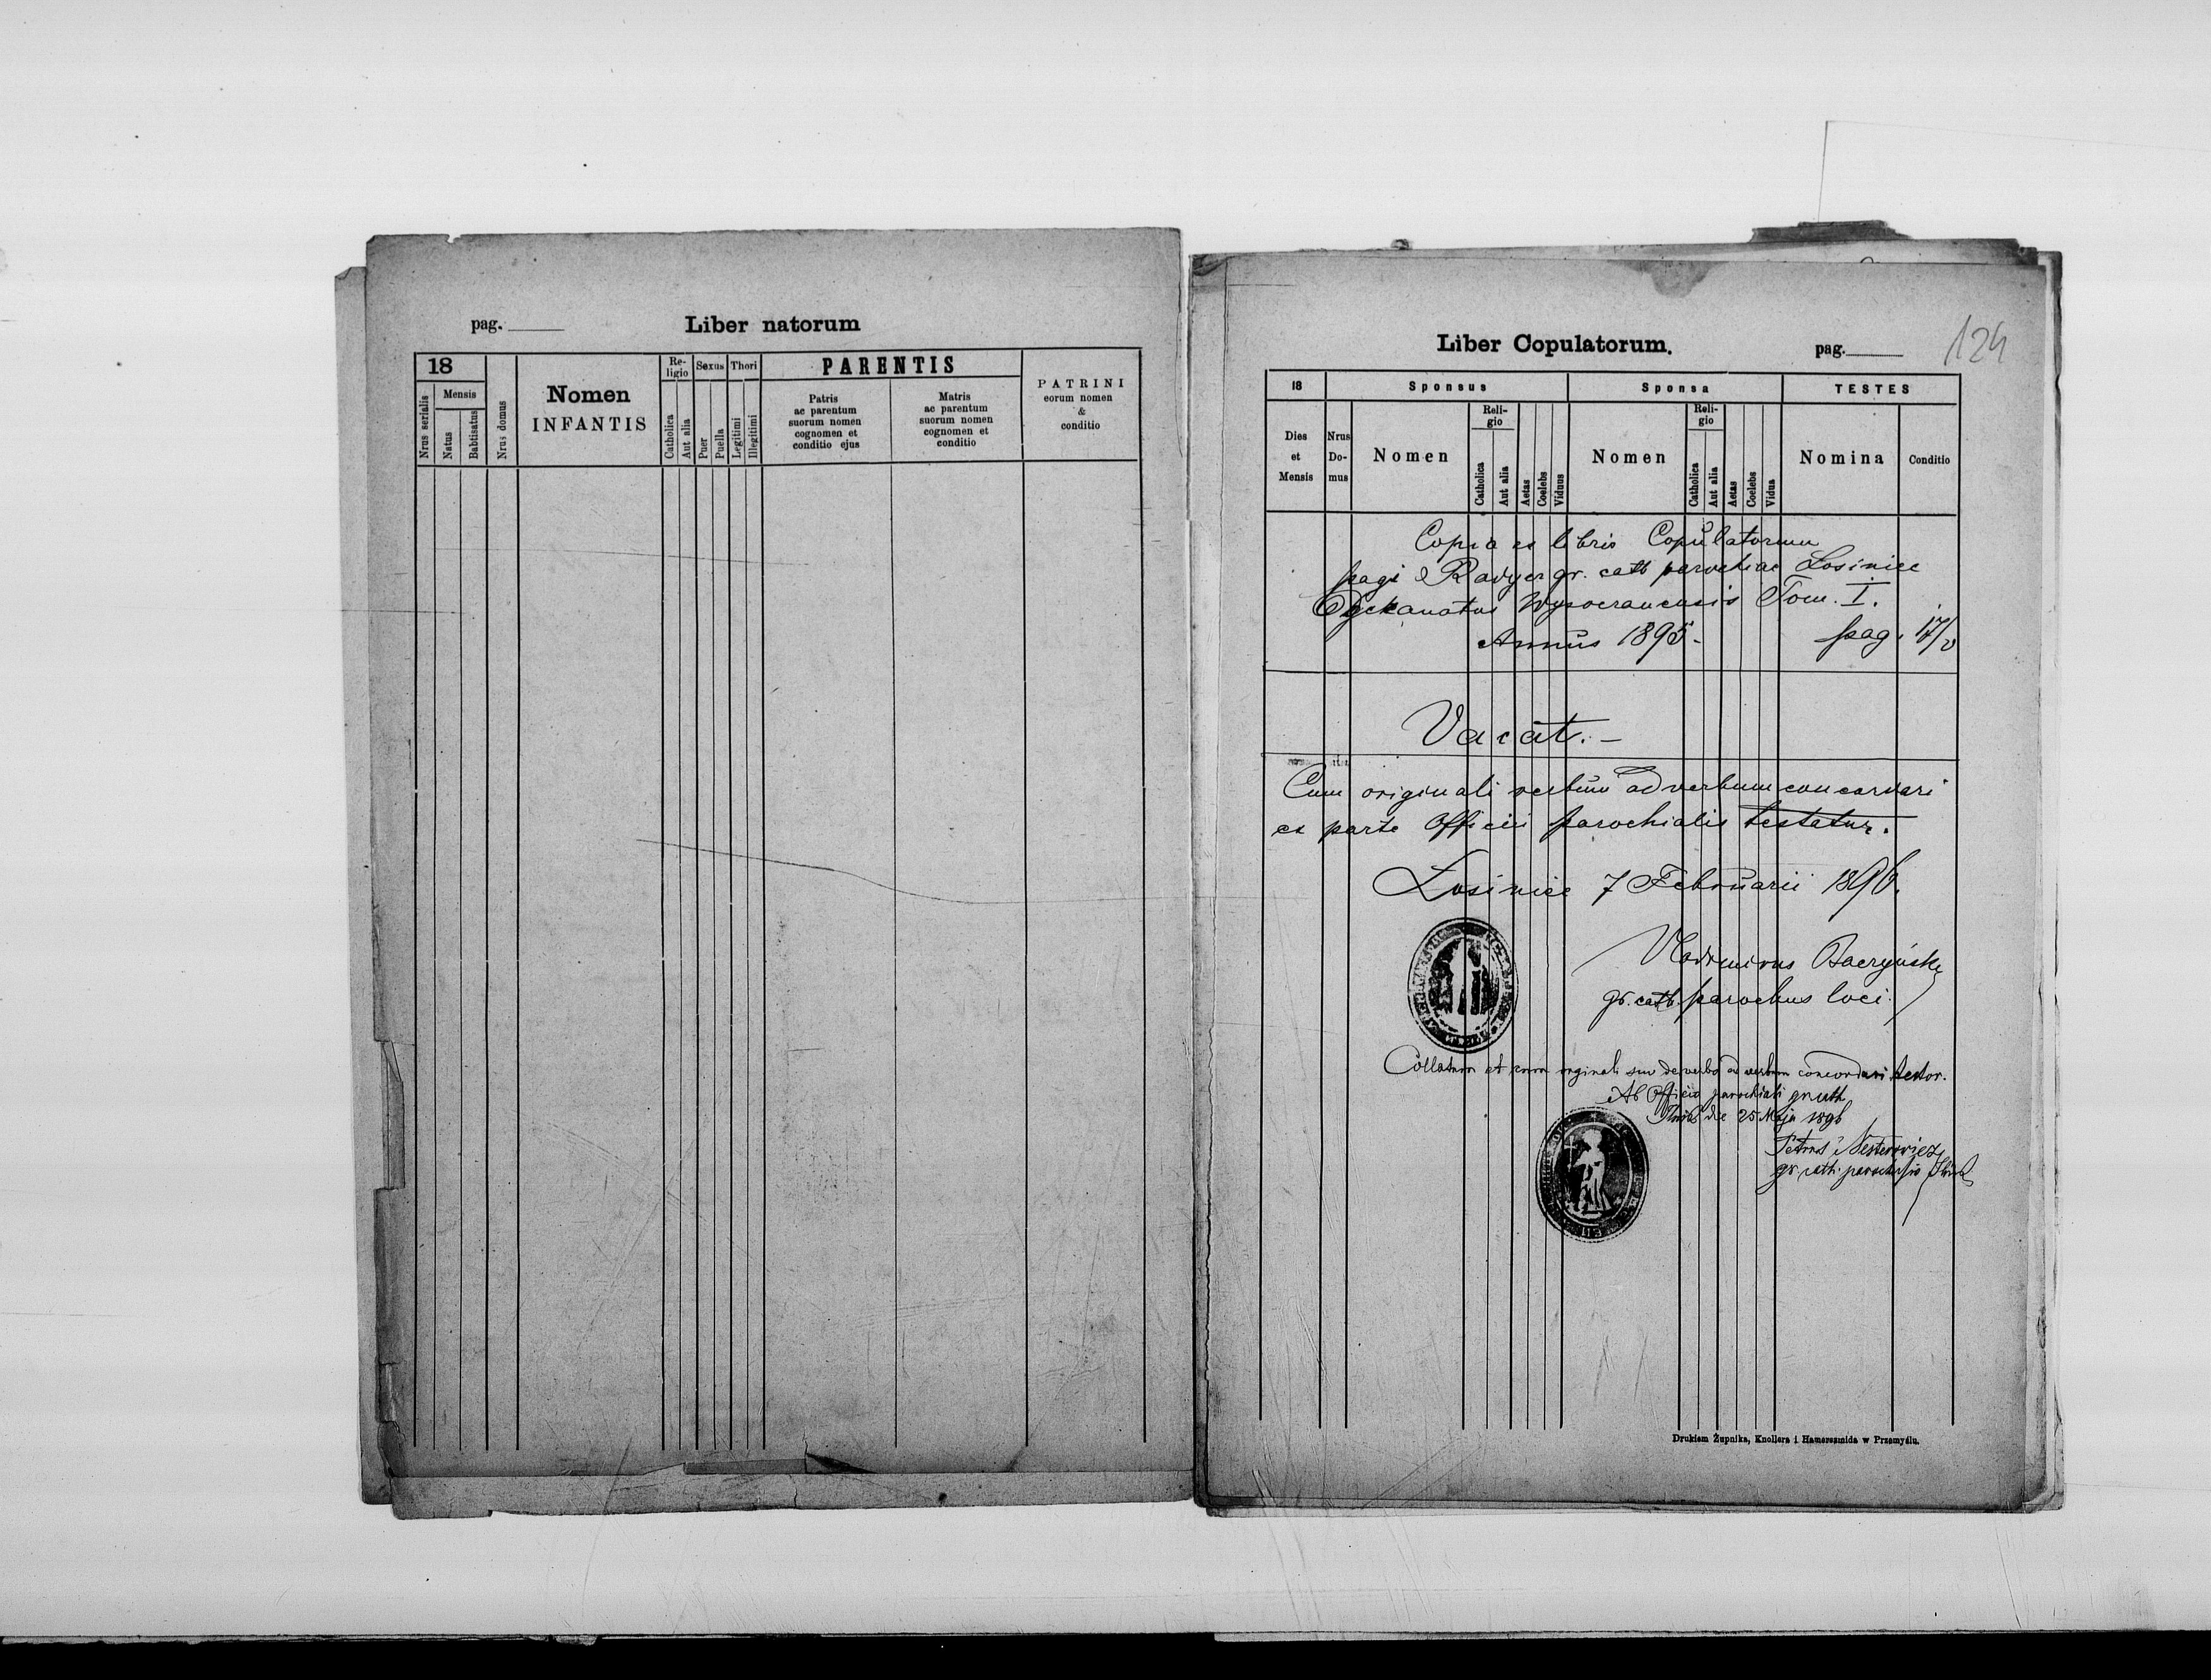 pag.
Liber natorum
18
Mensis
Nrus serialis
Natus
Babtisatus
Nrus domus
Nomen
INFANTIS
Re-
ligio
Catholica
Aut alia
Sexus
Puer
Puella
Thori
Legitimi
Illegitimi
PARENTIS
Patris
ac parentum
suorum nomen
cognomen et
conditio ejus
Matris
ac parentum
suorum nomen
cognomen et
conditio
PATRINI
eorum nomen
&
conditio
Liber Copulatorum.
pag.
124
18
Sponsus
Sponsa
TESTES
Dies
et
Mensis
Nrus
Do-
mus
Nomen
Reli-
gio
Catholica
Aut alia
Aetas
Coelebs
Viduus
Nomen
Reli-
gio
Catholica
Aut alia
Aetas
Coelebs
Vidua
Nomina
Conditio
Copia ex libris Copulatorum
pagi Radycz gr. cath parochiae Losiniec
Dyekanatus Wysocranensis Tom. I.
Annus 1895 - pag. 17/
Vacat. -
Cum originali verbum ad verbum concordari
ex parte Officii parochialis testatur.
Losiniec 7 Februarii 1896.
Vladimirus Baczyński
gr. cath. parochus loci.
Collatum et cum originali suo de verbo ad verbum concordari testor.
Ab Officio parochiali gr cath
die 25 Maja 1896
Petrus Nesterowicz
gr. cath. parochus
Drukiem Żupnika, Knollera i Hamerszmida w Przemyślu.